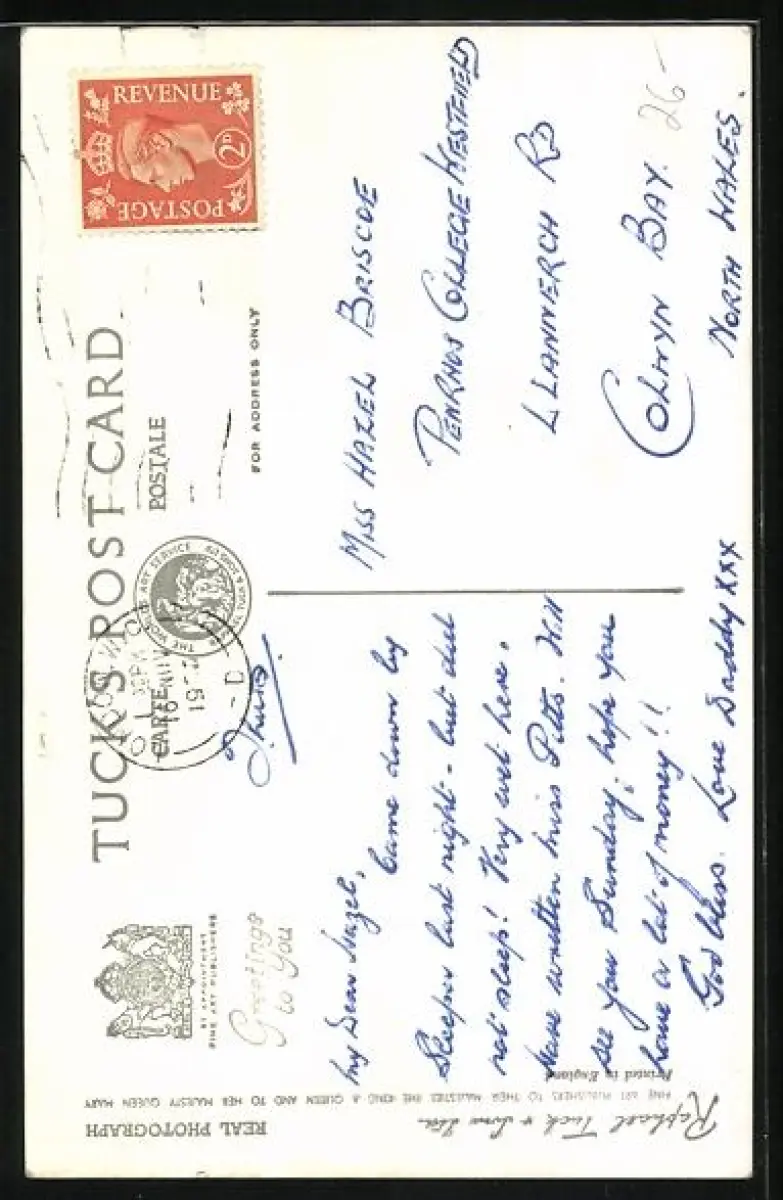 TUCK'S POST CARD
CARTE POSTALE
BY APPOINTMENT
FINE ART PUBLISHERS
THE WORLD'S ART SERVICE
RAPHAEL TUCK & SONS LTD
Greetings
to You
FOR ADDRESS ONLY
REVENUE
2D
POSTAGE
LONDON W.C.
19
D
Thurs.
My Dear Hazel,
Came down by
Sleeper last night - but did
not sleep! Very wet here.
Have written Miss Pitts. Will
see you Sunday; hope you
have a lot of money!!
God bless. Love Daddy xxx
MISS HAZEL BRISCOE
PENRHOS COLLEGE WESTFIELD
LLANNERCH RD
COLWYN BAY.
NORTH WALES.
26-
REAL PHOTOGRAPH
FINE ART PUBLISHERS TO THEIR MAJESTIES THE KING & QUEEN AND TO HER MAJESTY QUEEN MARY
Raphael Tuck & Sons Ltd.
Printed in England